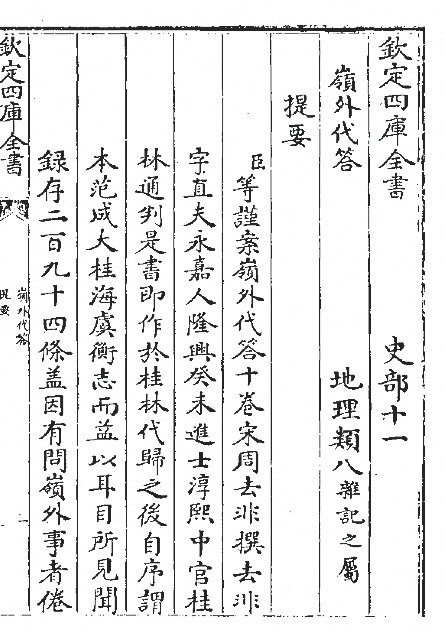 欽定四庫全書 史部十一
嶺外代答 地理類八雜記之屬
提要
臣等謹案嶺外代答十卷宋周去非撰去非
字直夫永嘉人隆興癸未進士淳熙中官桂
林通判是書即作於桂林代歸之後自序謂
本范成大桂海虞衡志而益以耳目所見聞
録存二百九十四條葢因有問嶺外事者倦
欽定四庫全書
嶺外代答
提要
一